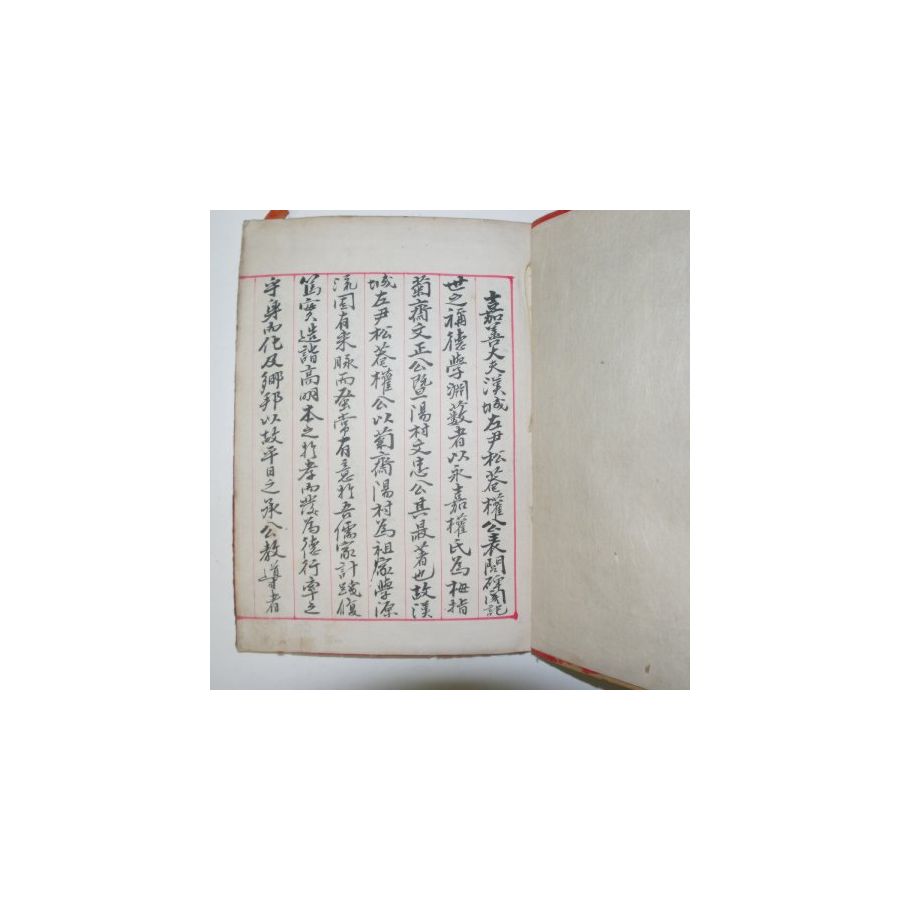 嘉善大夫漢城左尹松菴權公表閭碑閣記
世之稱德學淵藪者以永嘉權氏為拇指
菊齋文正公暨陽村文忠公其最著也故漢
城左尹松菴權公以菊齋陽村為祖家學源
流固有来脉而發常有意於吾儒家計踐修
篤實造詣高明本之於孝而發為德行率之
守身而化及鄉邦以故平日之承公教導者